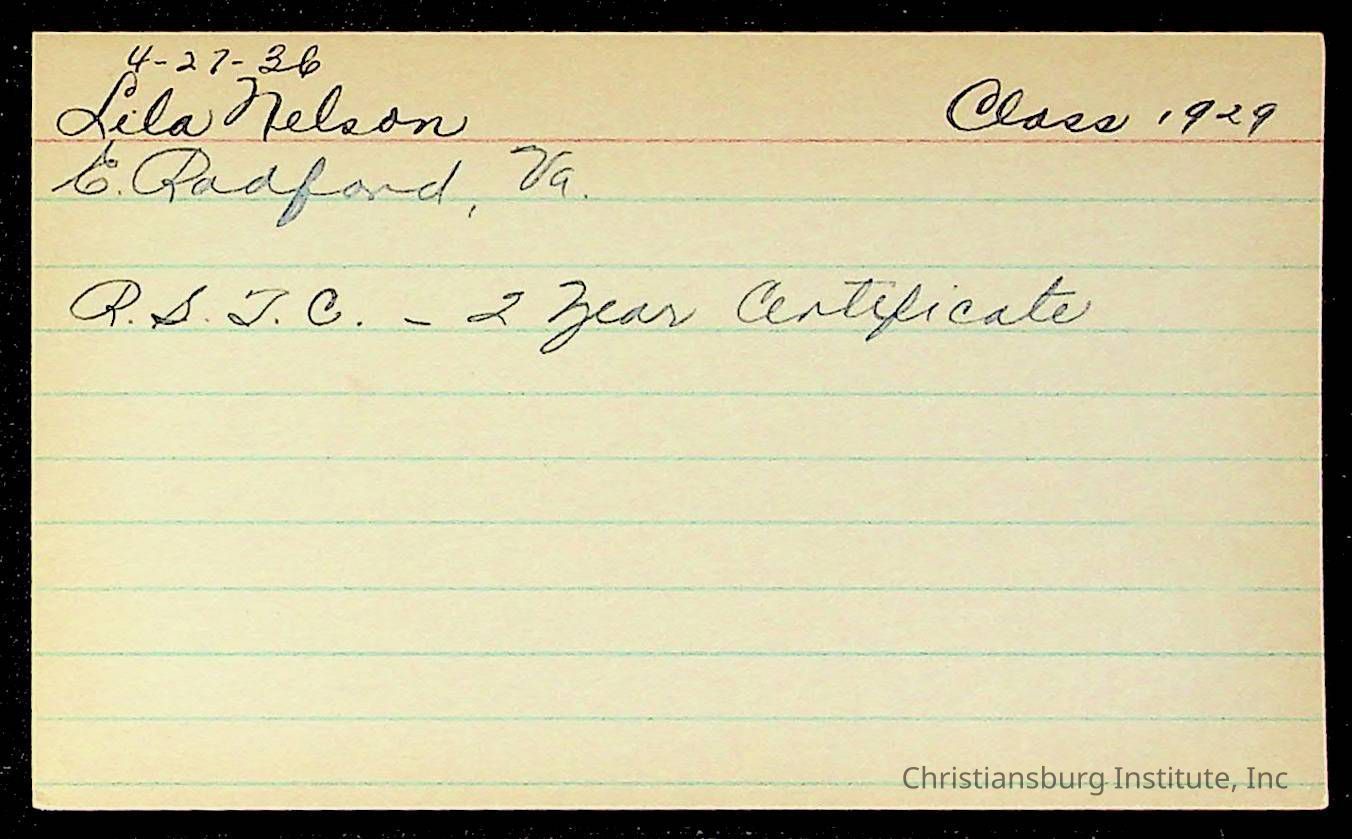 4-27-36
Lila Nelson Class 1929
E. Radford, Va.
R.S.T.C. - 2 Year Certificate
Christiansburg Institute, Inc